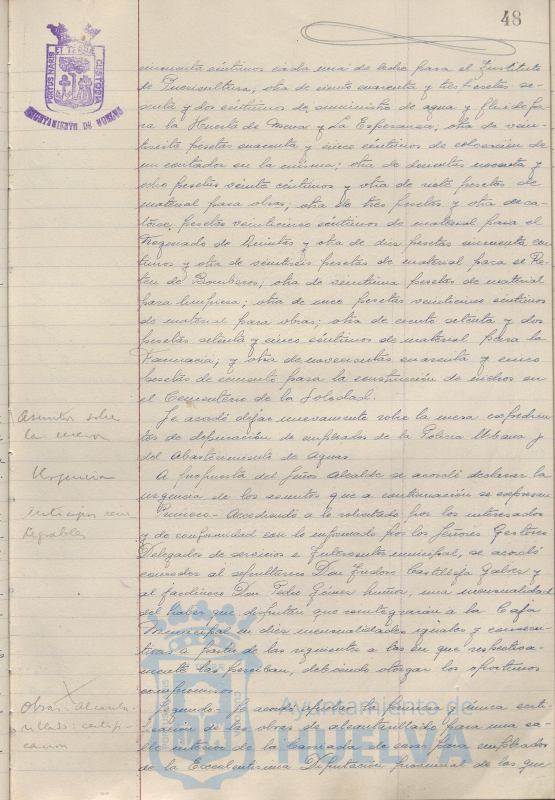 48
PORTUS MARIS
ET TERRAE
CUSTODIA
AYUNTAMIENTO DE HUELVA
cuenta céntimos cada una de leche para el Instituto
de Puericultura, otra de ciento cuarenta y tres pesetas se-
senta y dos céntimos de suministro de agua y fluido pa
ra la Huerta de Mena y La Esperanza; otra de vein-
tisiete pesetas cuarenta y cinco céntimos de colocación de
un contador en la misma; otra de doscientas noventa y
ocho pesetas veinte céntimos y otra de siete pesetas de
material para obras; otra de tres pesetas y otra de ca-
torce pesetas veinticinco céntimos de material para el
Negociado de Quintas y otra de diez pesetas cincuenta cén
timos y otra de veintiseis pesetas de material para el Re-
ten de Bomberos; otra de veintiuna pesetas de material
para limpieza; otra de once pesetas veinticinco céntimos
de material para obras; otra de ciento setenta y dos
pesetas setenta y cinco céntimos de material para la
Farmacia; y otra de novecientas cuarenta y cinco
pesetas de cemento para la construcción de nichos en
el Cementerio de la Soledad.
Asuntos sobre
la mesa
Se acordó dejar nuevamente sobre la mesa expedien-
tes de depuración de empleados de la Policia Urbana y
del Abastecimiento de Aguas.
Urgencia
A propuesta del Señor Alcalde se acordó declarar la
urgencia de los asuntos que a continuación se expresan
Anticipos rein
tegrables
Primero- Accediendo a lo solicitado por los interesados
y de conformidad con lo informado por los Señores Gestores
Delegados de servicios e Interventor municipal, se acordó
conceder al sepulturero Don Isidoro Castilleja Galvez y
al jardinero Don Pedro Gómez Muñoz, una mensualidad
del haber que disfrutan que reintegrarán a la Caja
Municipal en diez mensualidades iguales y consecu-
tivas a partir de las siguientes a las en que respectiva-
mente las perciban, debiendo otorgar los oportunos
compromisos.
Obras: Alcanta-
rillado: certifi-
cación
Segundo- Se acordó aprobar la primera y unica certi-
ficación de las obras de alcantarillado para una ca-
lle interior de la barriada de casas para empleados
de la Excelentisima Diputación provincial de las que
Ayuntamiento de
HUELVA